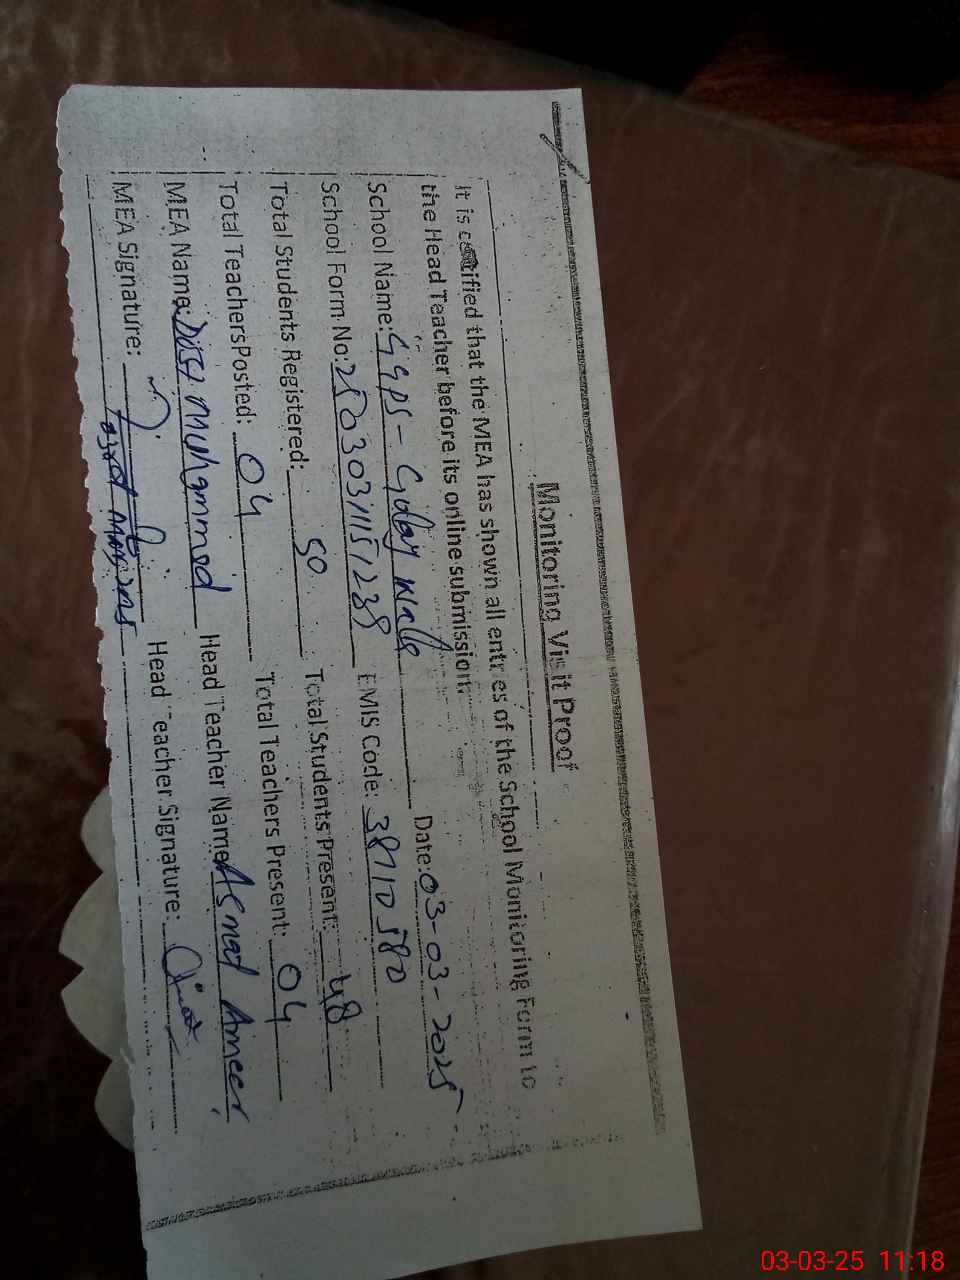 Monitoring Visit Proof
It is certified that the MEA has shown all entries of the School Monitoring Form to
the Head Teacher before its online submission.
School Name: GGPS - Date: 03-03-2025
School Form No: EMIS Code: 38110580
Total Students Registered: 50 Total Students Present: 48
Total Teachers Posted: 04 Total Teachers Present: 04
MEA Name: Muhammad Head Teacher Name: Asmad Ameer
MEA Signature: Head Teacher Signature:
03-03-25 11:18